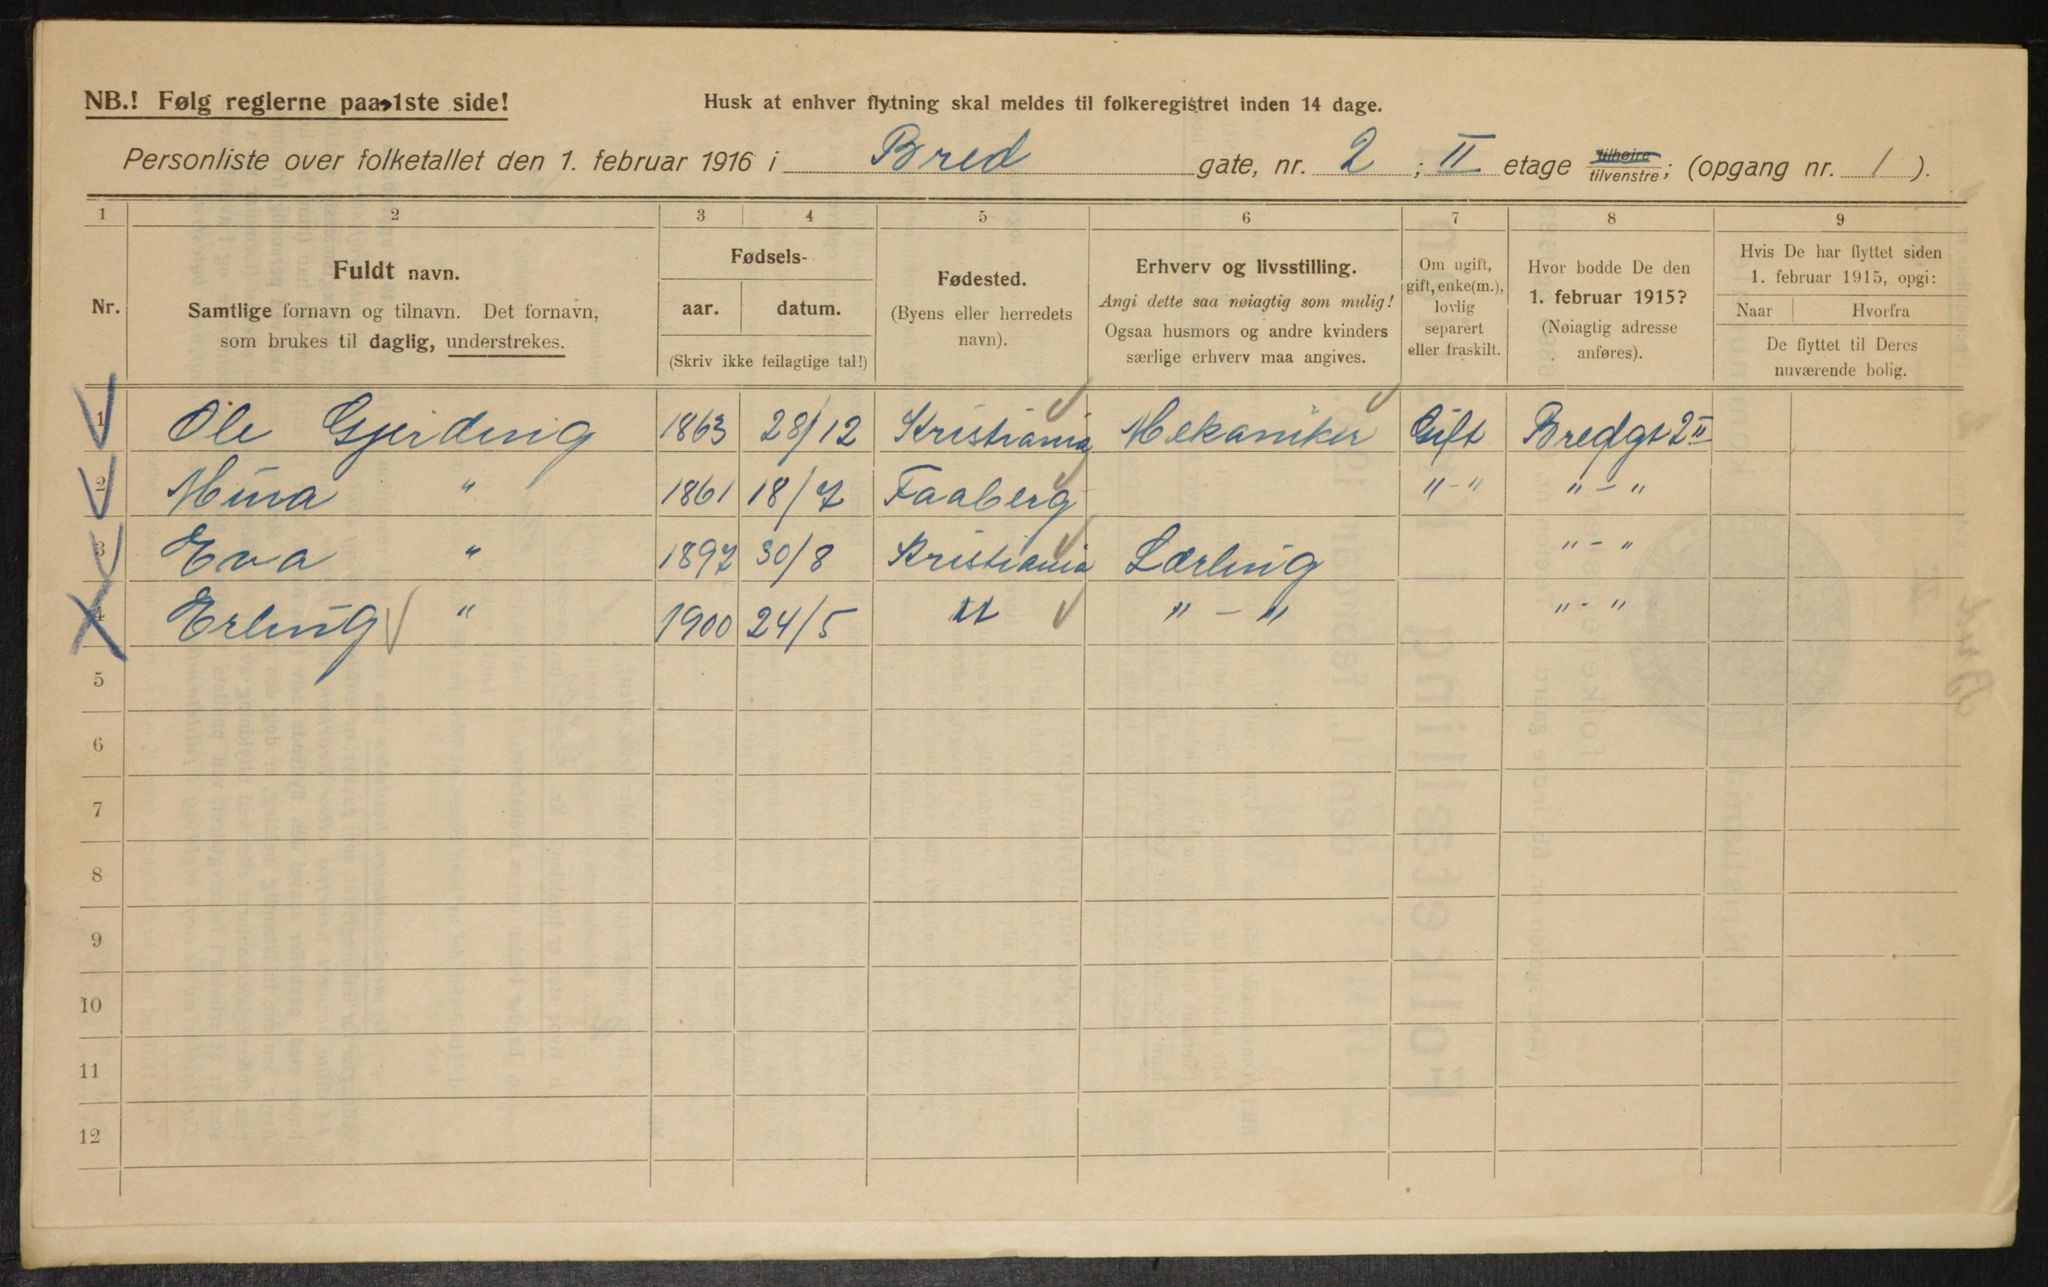 NB.! Følg reglerne paa 1ste side!
Husk at enhver flytning skal meldes til folkeregistret inden 14 dage.
Personliste over folketallet den 1. februar 1916 i Bred gate, nr. 2 ; II etage tilhøire tilvenstre; (opgang nr. 1 ).
1 2 3 4 5 6 7 8 9
Nr.
Fuldt navn.
Samtlige fornavn og tilnavn. Det fornavn,
som brukes til daglig, understrekes.
Fødsels-
aar. datum.
(Skriv ikke feilagtige tal!)
Fødested.
(Byens eller herredets
navn).
Erhverv og livsstilling.
Angi dette saa nøiagtig som mulig!
Ogsaa husmors og andre kvinders
særlige erhverv maa angives.
Om ugift,
gift, enke(m.),
lovlig
separert
eller fraskilt.
Hvor bodde De den
1. februar 1915?
(Nøiagtig adresse
anføres).
Hvis De har flyttet siden
1. februar 1915, opgi:
Naar Hvorfra
De flyttet til Deres
nuværende bolig.
1 Ole Gjerding 1863 28/12 Kristiania Mekaniker Gift Bredgt 2 II
2 Mina " 1861 18/7 Faaberg "-" "-"
3 Eva " 1897 30/8 Kristiania Lærling "-"
4 Erling " 1900 24/5 " "-" "-"
5
6
7
8
9
10
11
12